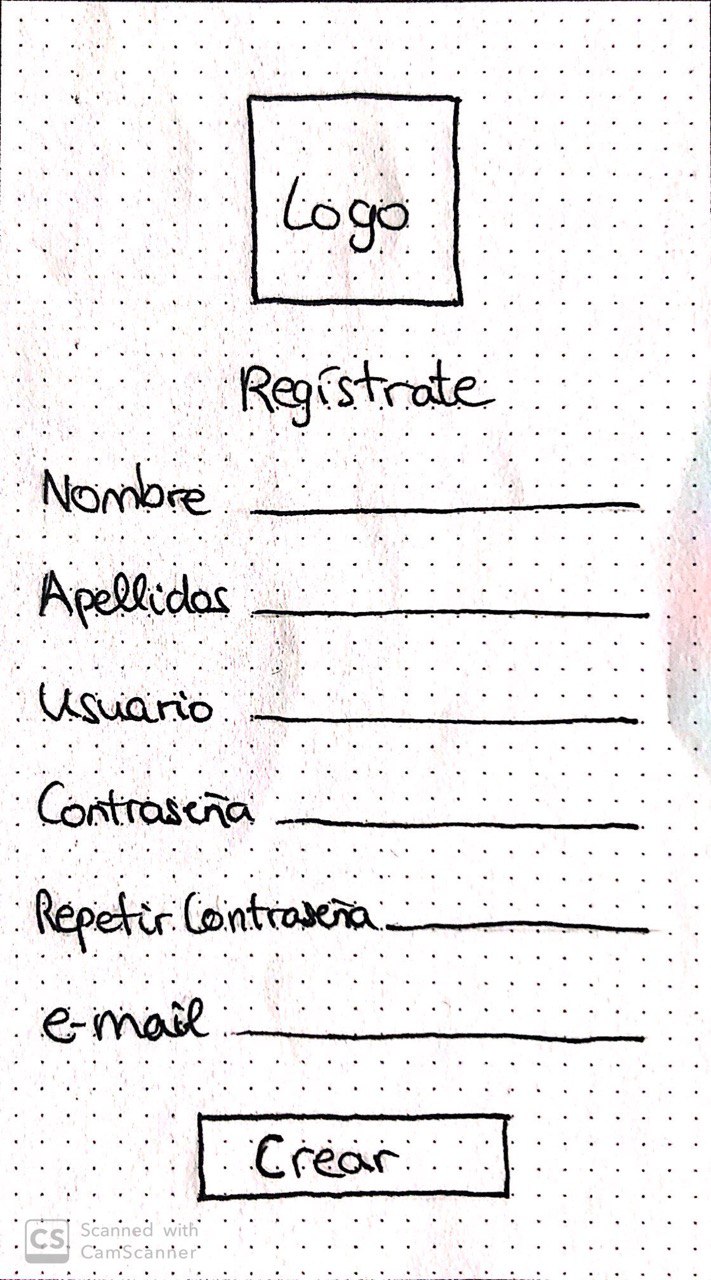 Logo
Regístrate
Nombre
Apellidos
Usuario
Contraseña
Repetir Contraseña
e-mail
Crear
CS Scanned with
CamScanner